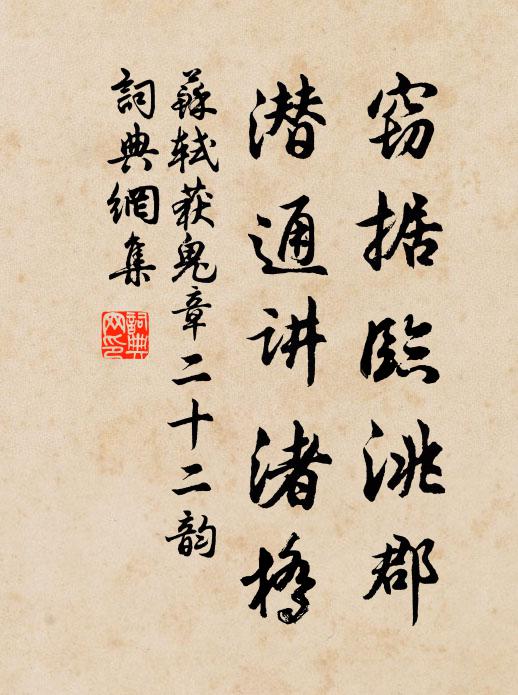 窃据临洮郡
潜通讲渚桥
蘇軾获鬼章二十二韵
詞典網集
詞典
网印